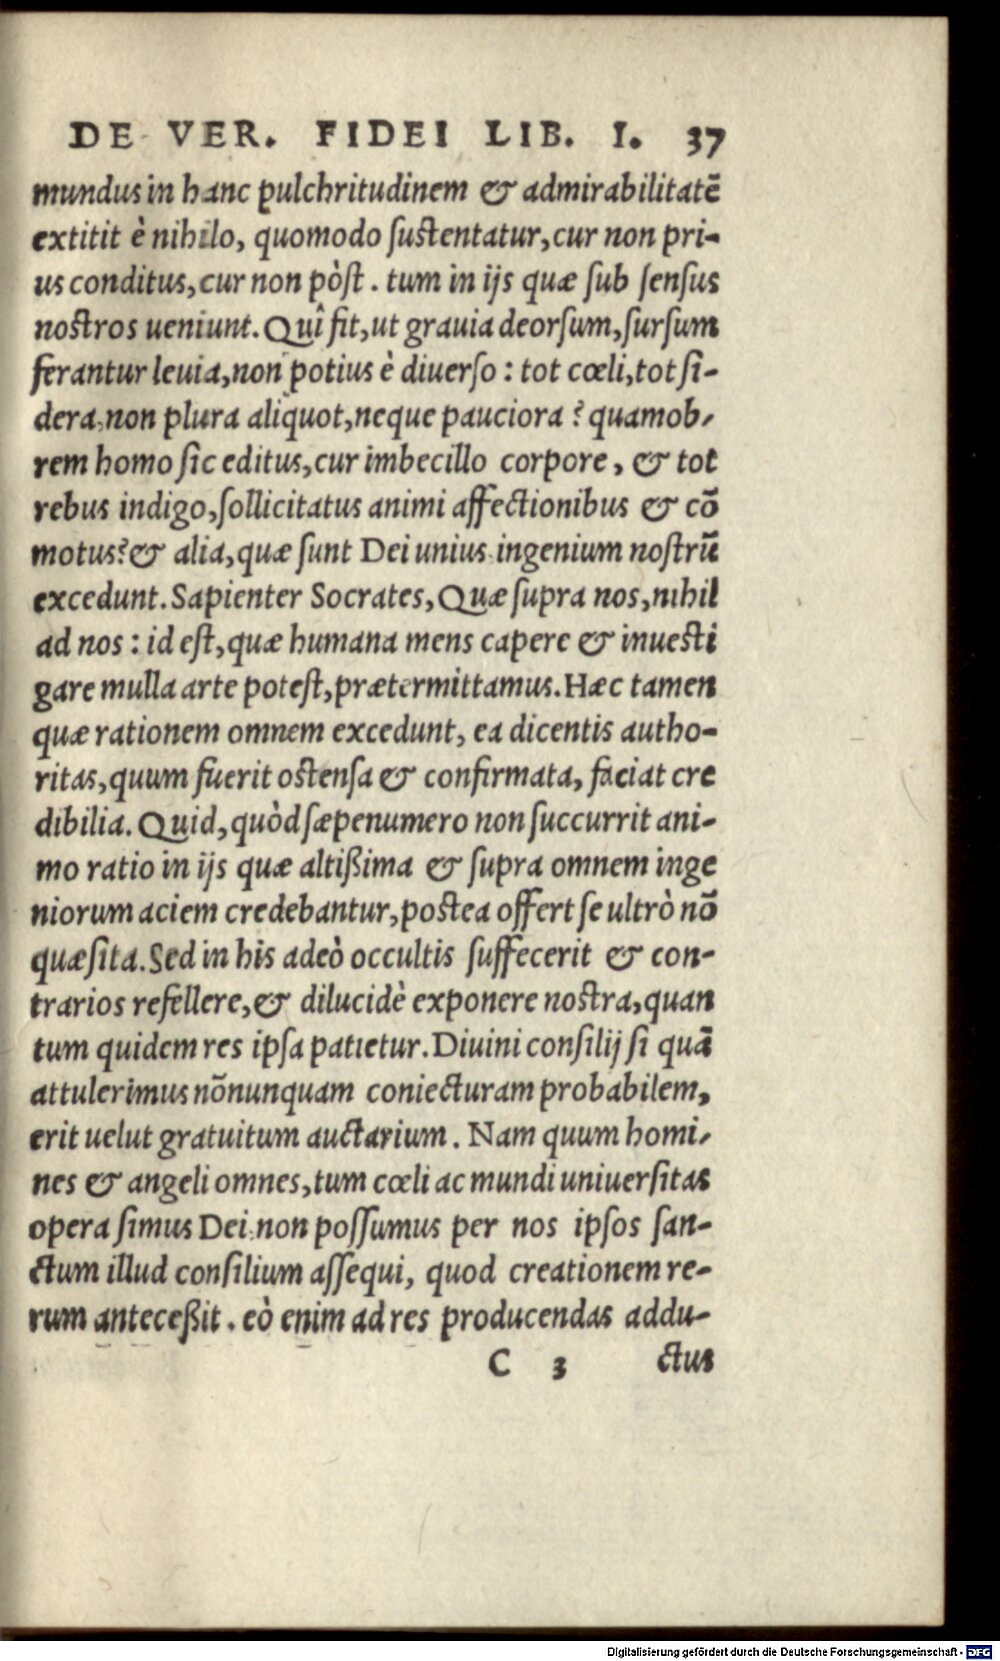 DE VER. FIDEI LIB. I. 37
mundus in hanc pulchritudinem & admirabilitatē
extitit è nihilo, quomodo ſuſtentatur, cur non pri-
us conditus, cur non pòſt. tum in ijs quæ ſub ſenſus
noſtros ueniunt. Quî fit, ut grauia deorſum, ſurſum
ferantur leuia, non potius è diuerſo: tot cœli, tot ſi-
dera, non plura aliquot, neque pauciora? quamob-
rem homo ſic editus, cur imbecillo corpore, & tot
rebus indigo, ſollicitatus animi affectionibus & cō
motus? & alia, quæ ſunt Dei unius ingenium noſtrū
excedunt. Sapienter Socrates, Quæ ſupra nos, nihil
ad nos: id eſt, quæ humana mens capere & inueſti
gare mulla arte poteſt, prætermittamus. Hæc tamen
quæ rationem omnem excedunt, ea dicentis autho-
ritas, quum fuerit oſtenſa & confirmata, faciat cre
dibilia. Quid, quòd ſæpenumero non ſuccurrit ani-
mo ratio in ijs quæ altißima & ſupra omnem inge
niorum aciem credebantur, poſtea offert ſe ultrò nō
quæſita. Sed in his adeò occultis ſuffecerit & con-
trarios refellere, & dilucidè exponere noſtra, quan
tum quidem res ipſa patietur. Diuini conſilij ſi quā
attulerimus nōnunquam coniecturam probabilem,
erit uelut gratuitum auctarium. Nam quum homi-
nes & angeli omnes, tum cœli ac mundi uniuerſitas
opera ſimus Dei, non poſſumus per nos ipſos ſan-
ctum illud conſilium aſſequi, quod creationem re-
rum anteceßit. eò enim ad res producendas addu-
C 3 ctus
Digitalisierung gefördert durch die Deutsche Forschungsgemeinschaft - DFG